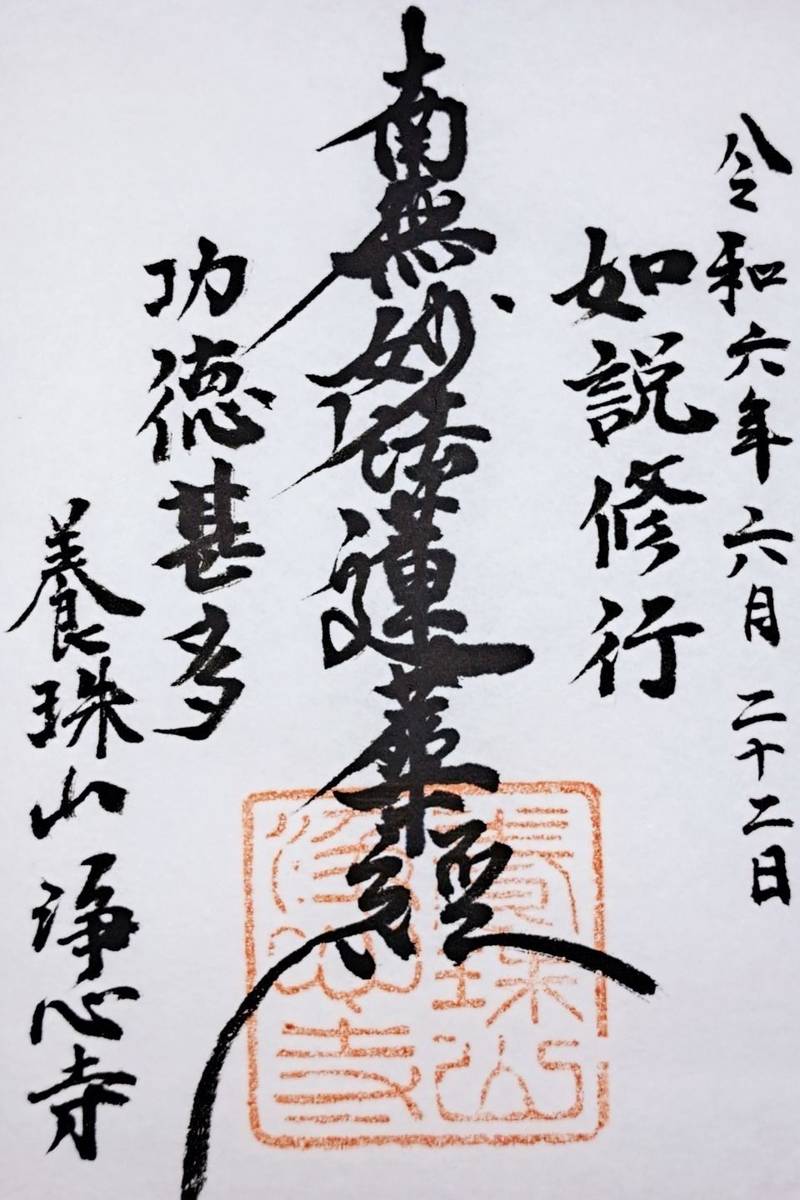 令和六年六月二十二日
如説修行
南無妙法蓮華経
功徳甚多
養珠山浄心寺
養珠山
浄心寺